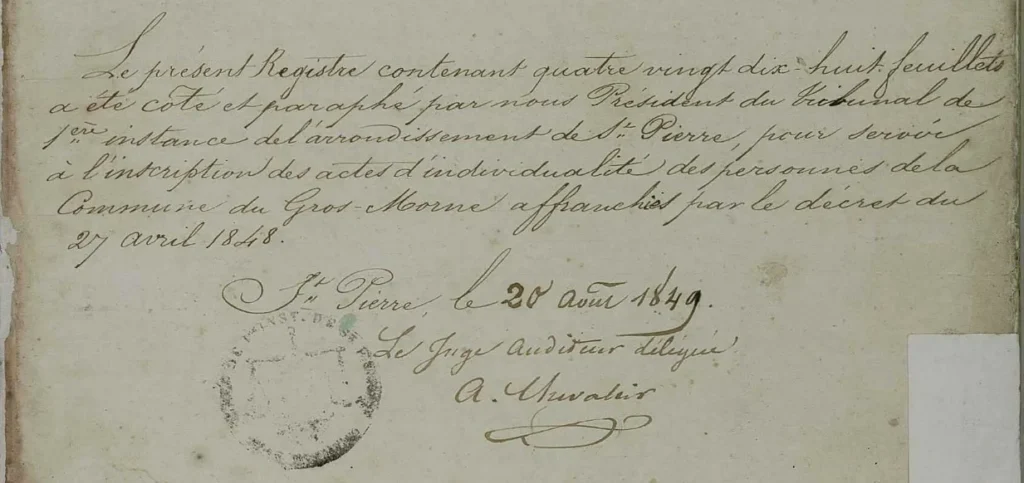 Le présent Registre contenant quatre vingt dix-huit feuillets
a été coté et paraphé par nous Président du Tribunal de
1ère instance de l'arrondissement de St. Pierre, pour servir
à l'inscription des actes d'individualité des personnes de la
Commune du Gros-Morne affranchies par le décret du
27 avril 1848.
St. Pierre, le 20 Août 1849.
Le Juge Auditeur délégué
A. Chevalier
DE 1. INST. DE ST.